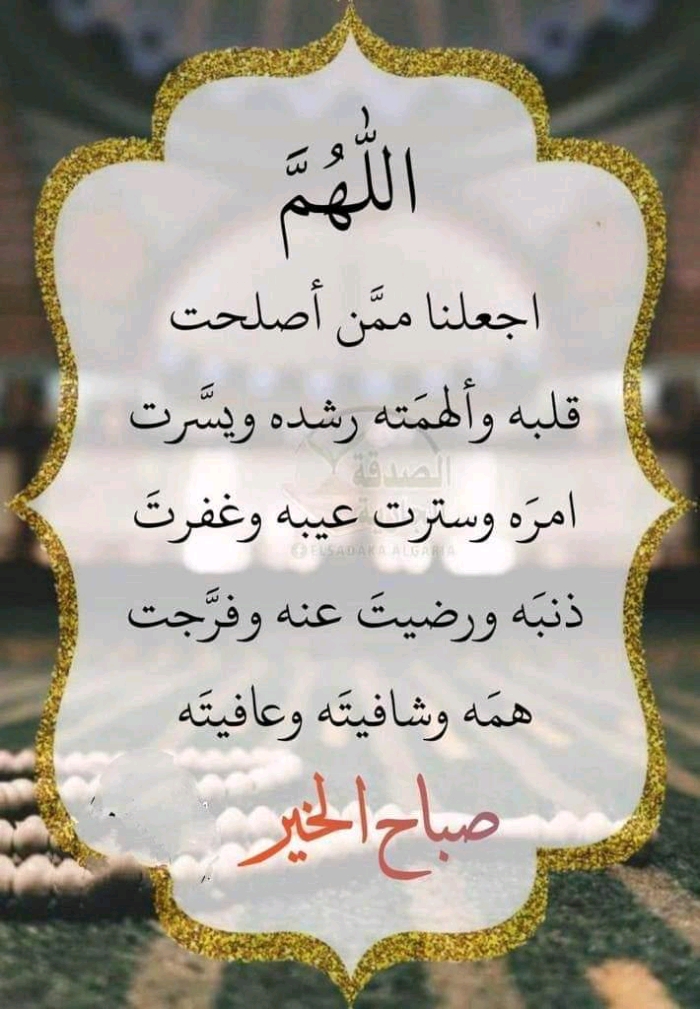 اللّٰهُمَّ
اجعلنا ممَّن أصلحت
قلبه وألهمَته رشده ويسَّرت
الصدقة
الجارية
امرَه وسترت عيبه وغفرتَ
@ELSADAKA ALGARIA
ذنبَه ورضيتَ عنه وفرَّجت
همَه وشافيتَه وعافيتَه
صباح الخير